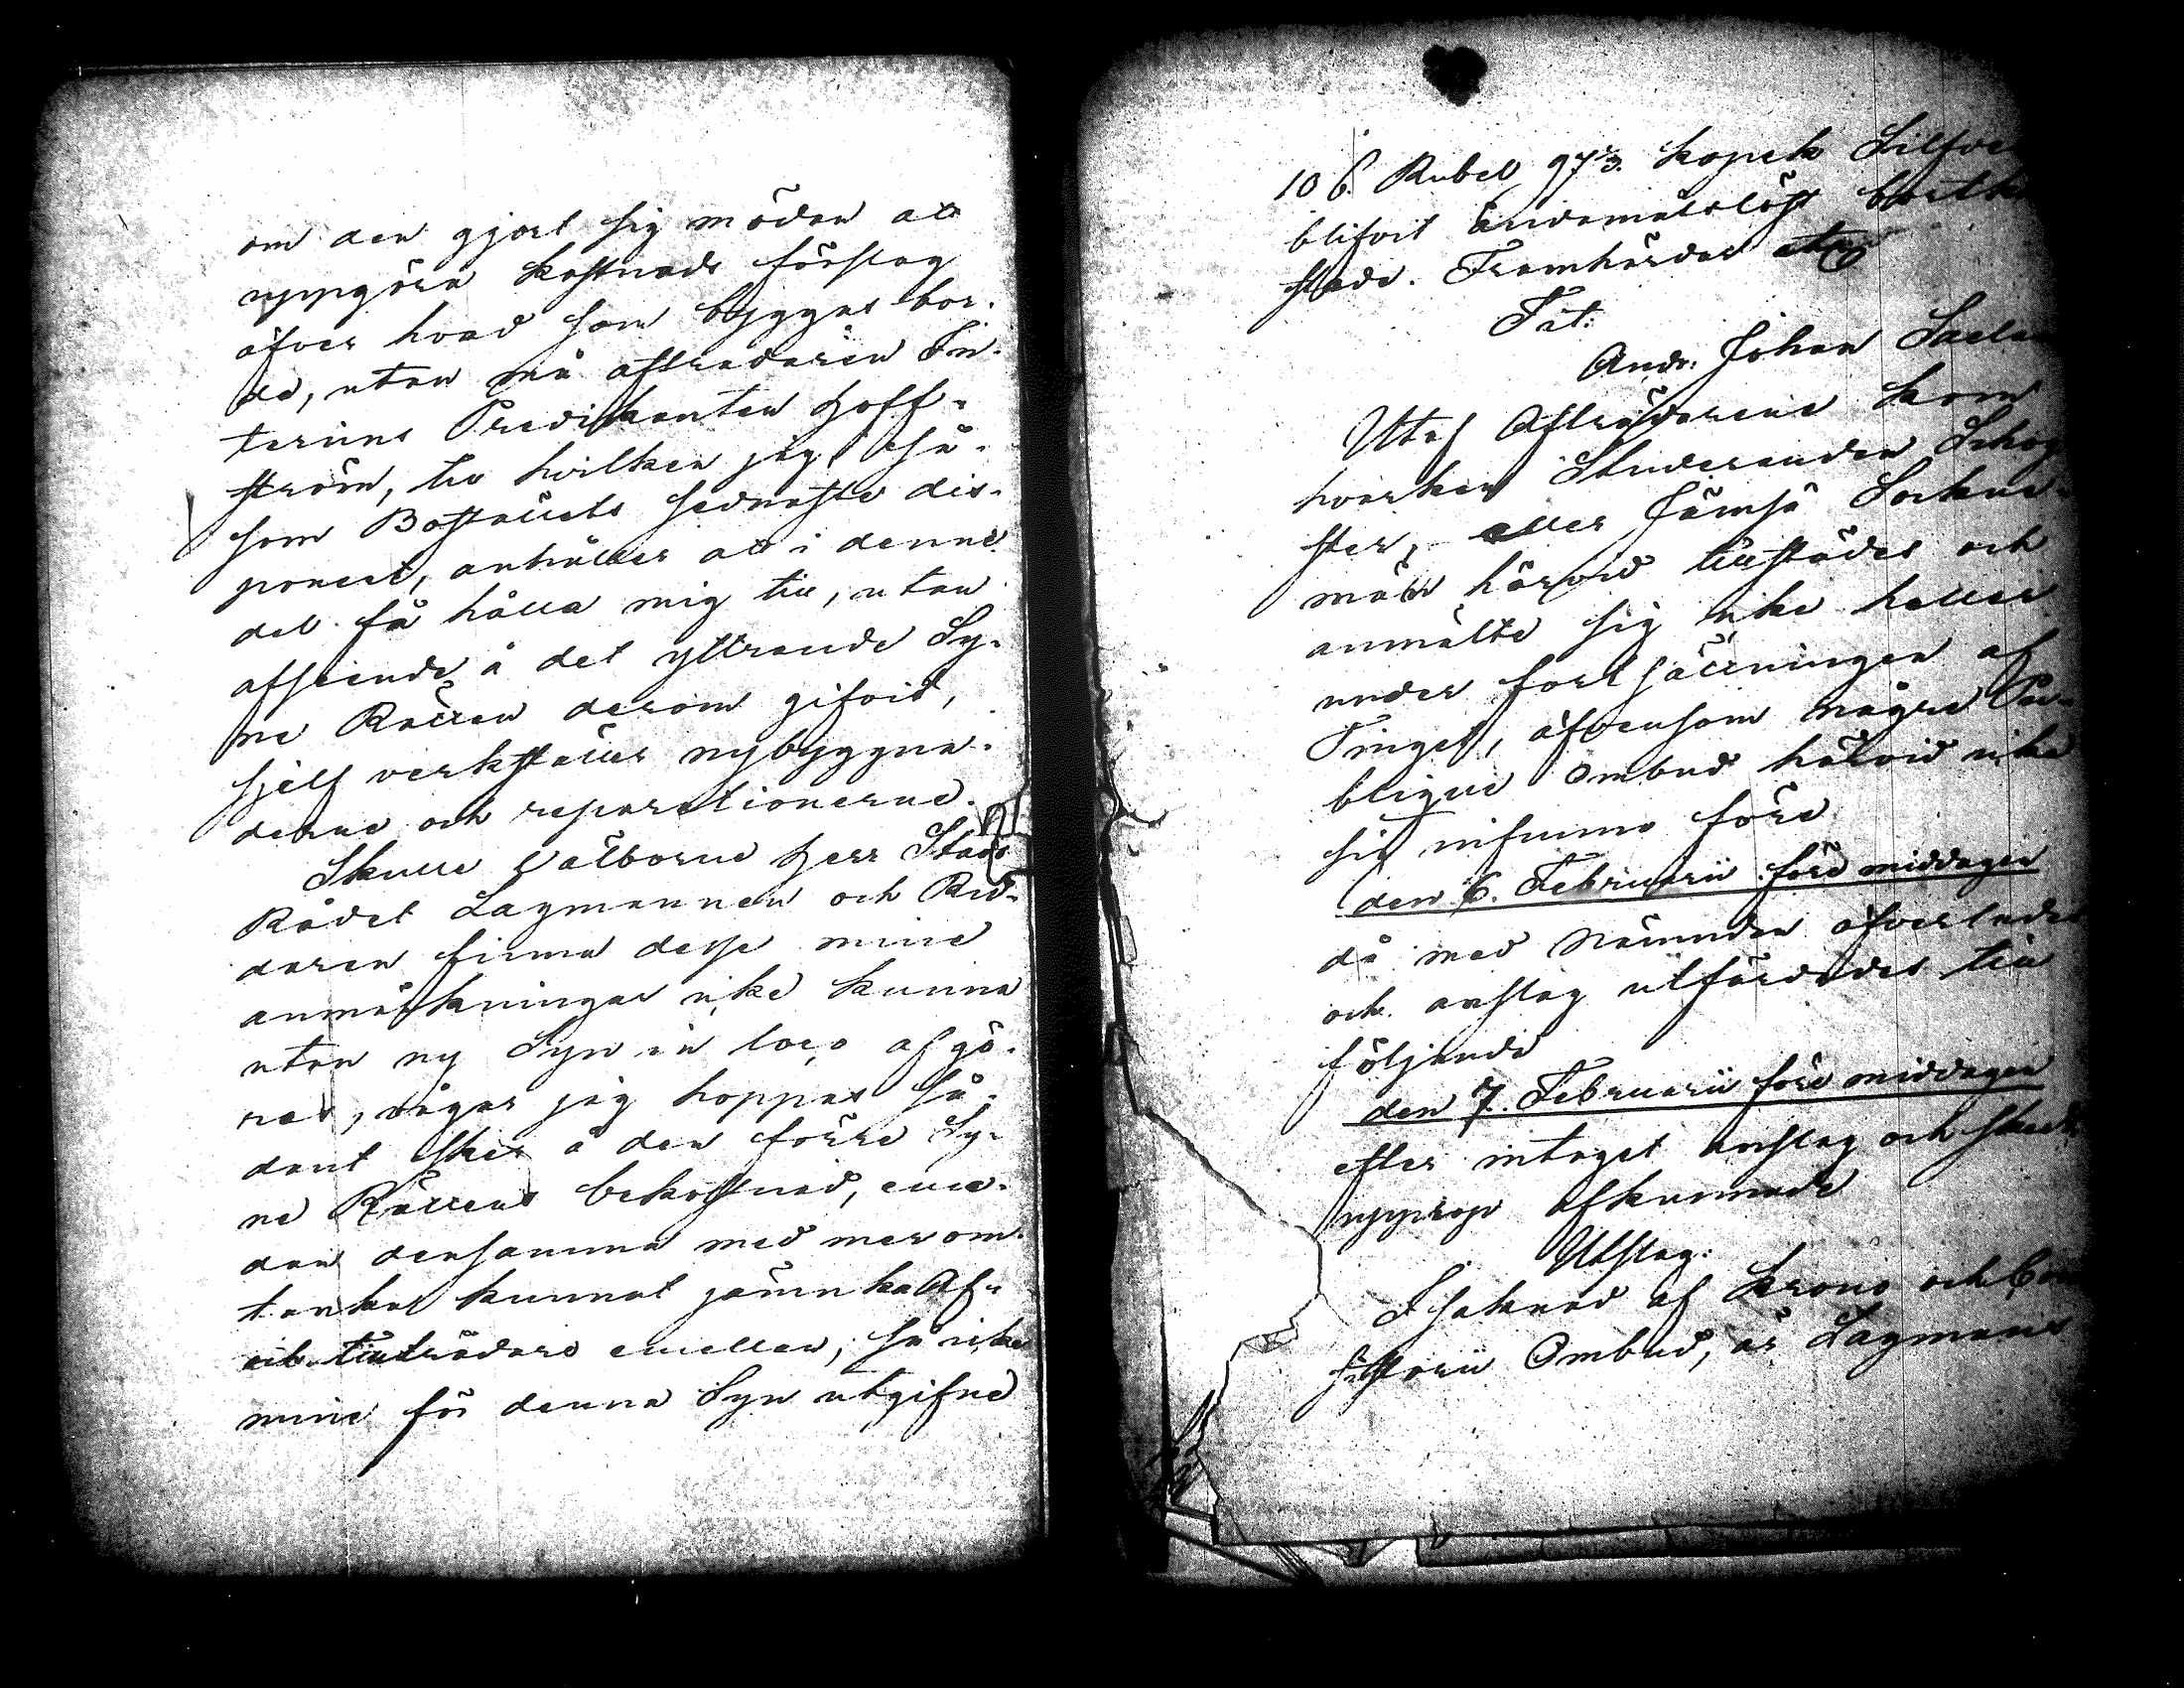 om den gjort sig mödan att
uppgöra kostnads förslag
öfver hvad som byggas bor-
de, utan må afträdaren In-
terims Predikanten Hoff-
ström, till hvilken jag, så-
som Boställets sednaste dis-
ponent, anhåller att i denna
del få hålla mig till, utan
afseende å det yttrande Sy-
ne Rätten derom gifvit,
sjelf verkställa nybyggna-
derne och reparationerne.
Skulle Välborne Herr Stats
Rådet Lagmannen och Rid-
daren finna desse mine
anmärkningar icke kunna
utan ny Syn in loco afgö-
ras, vågar jag hoppas så-
dant sker å den förre Sy-
ne Rättens bekostnad, eme-
dan densamma med mer om-
tanka kunnat jämnka Af-
och tillträdare emellan, så icke
mine för denna Syn utgifne
106 Rubel 97 1/3 Kopek Silfver
blifvit ändamålslöst bortka
stade. Framhärdar etc
Tit:
And: Johan
Utaf Afträdarene kom
hvarken Studeranden
ster, eller Jämsä Sockne-
män härvid tillstädes och
anmälte sig icke heller
under fortsättningen af
Tinget, äfvensom någre
blique Ombud härvid icke
sig infunno före
den 6. Februarii före middagen
då med Nämnden öfverlades
och anslag utfärdades till
följande
den 7. Februarii före middagen
efter intaget anslag och skedt
upprop afkunnade
Utslag:
I saknad af Krono och Con
sistorii Ombud, är Lagmans